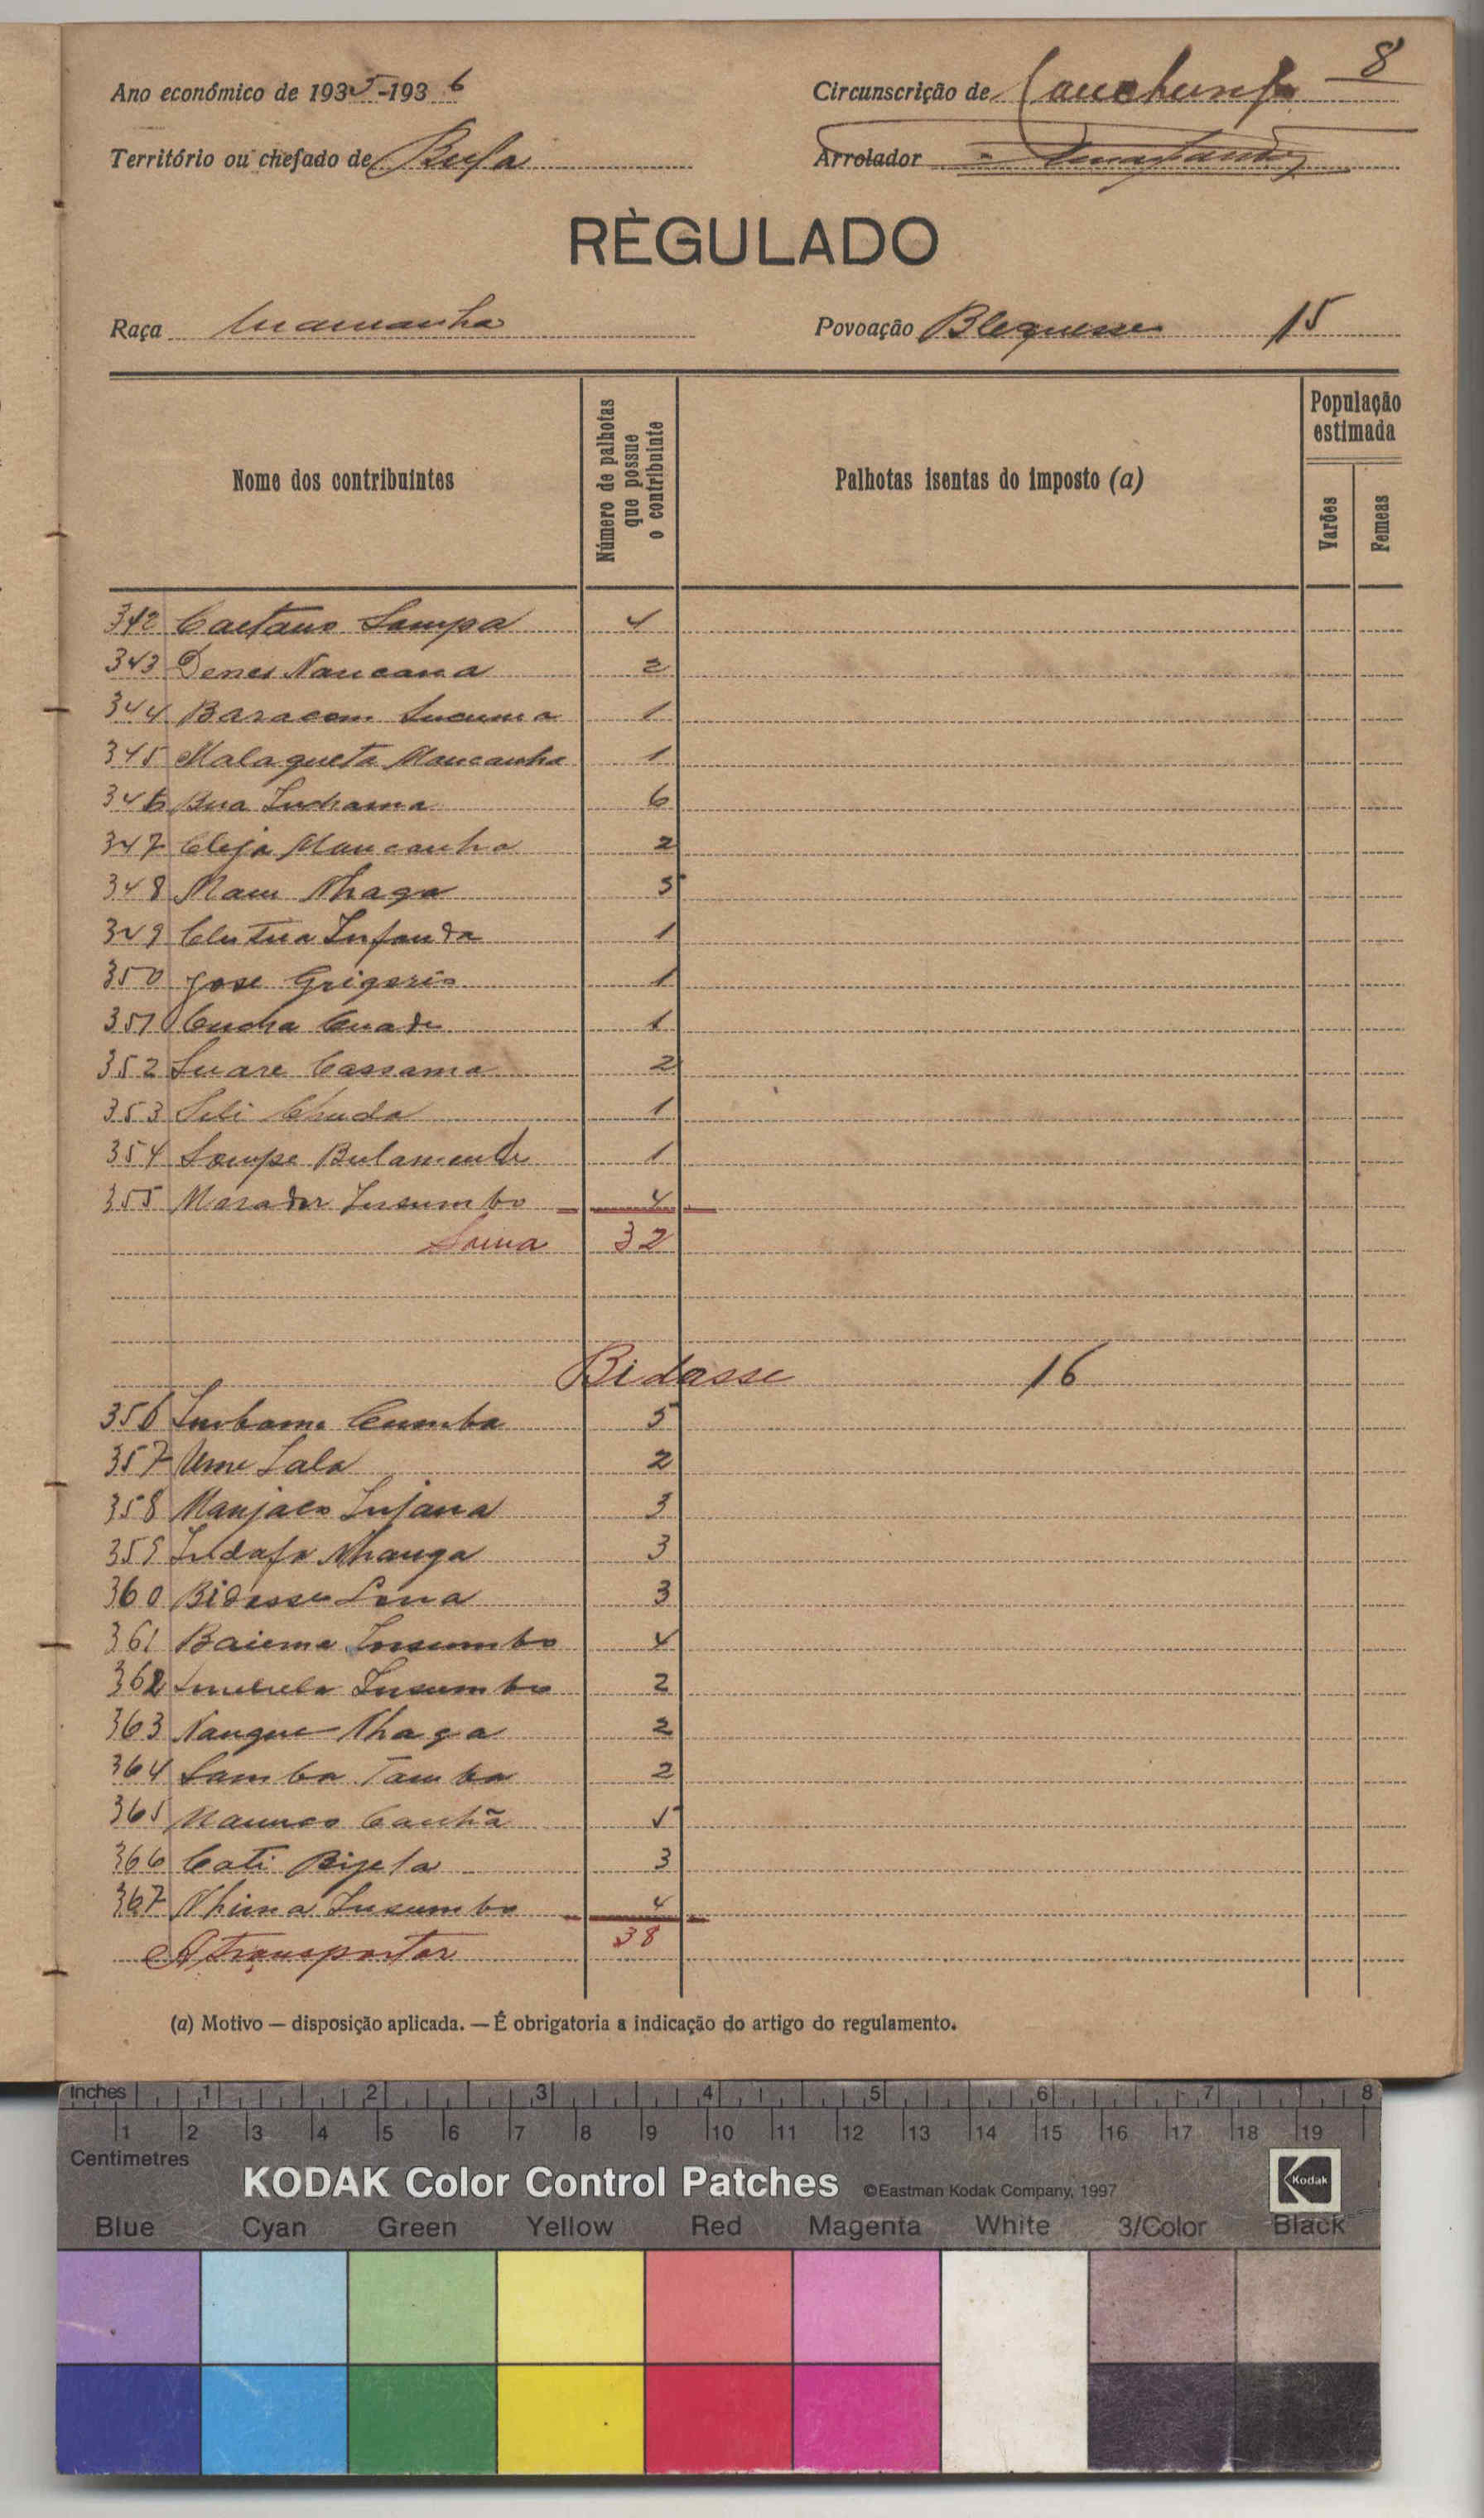 8
Ano económico de 1935-1936 Circunscrição de
Território ou chefado de Bula Arrolador
RÈGULADO
Raça Mamanha Povoação Blequesse 15
Nome dos contribuintes
Número de palhotas que possue o contribuinte
Palhotas isentas do imposto (a)
População estimada
Varões
Femeas
342 Caetano Sampa 4
343 Nancana 2
344 Baracom 1
345 Malagueta Mancanha 1
346 Bua Inchama 6
347 Cleja Mancanha 2
348 Nhaga 5
349 Infanda 1
350 Jose Grigorio 1
351 1
352 Suare Cassama 2
353 1
354 Sampe 1
355 Morador Insumbo 4
Soma 32
Bidasse 16
356 Cumba 5
357 Ume Sala 2
358 Manjaco Injana 3
359 Indafa Nhanga 3
360 Bidasse 3
361 Baiema Insumbo 4
362 Insumbo 2
363 Nangue Nhaga 2
364 Samba Tamba 2
365 Canhã 5
366 Cati Bijeta 3
367 Nhima Insumbo 4
A transportar 38
(a) Motivo — disposição aplicada. — É obrigatoria a indicação do artigo do regulamento.
Inches 1 2 3 4 5 6 7 8
1 2 3 4 5 6 7 8 9 10 11 12 13 14 15 16 17 18 19
Centimetres
KODAK Color Control Patches ©Eastman Kodak Company, 1997 Kodak
Blue Cyan Green Yellow Red Magenta White 3/Color Black